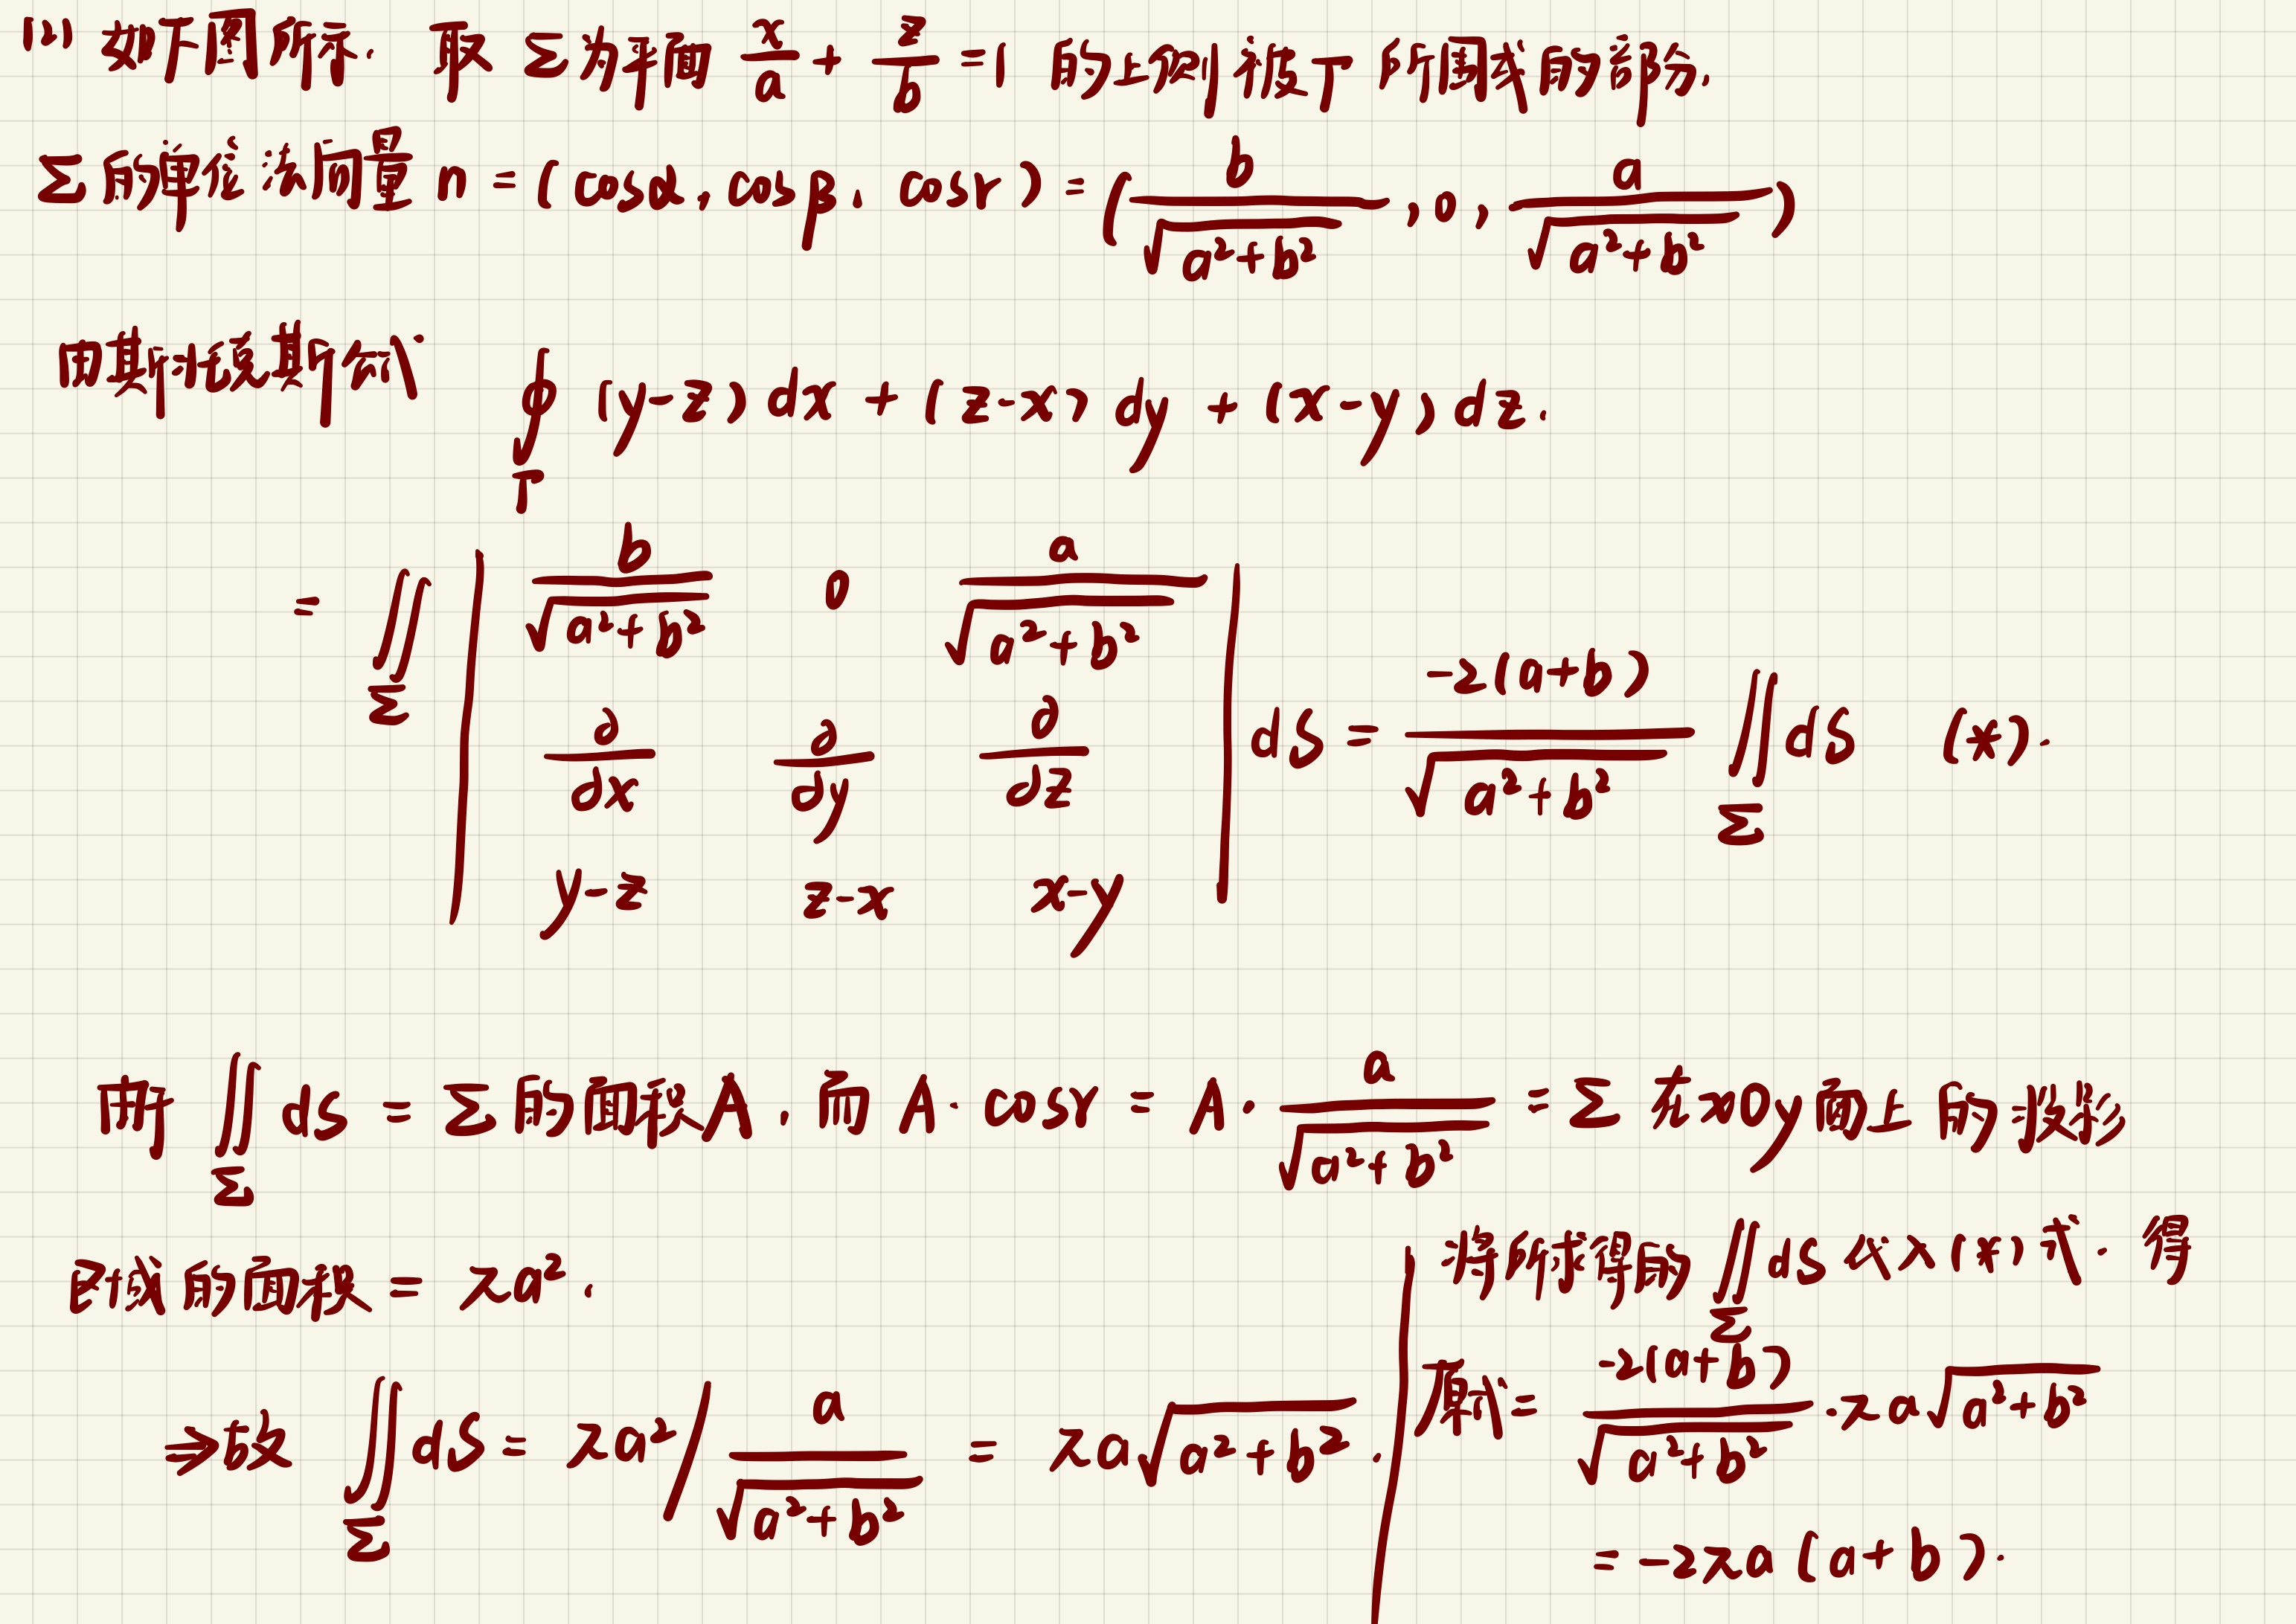 (2) 如下图所示. 取 Σ 为平面 x/a + z/b = 1 的上侧被 Γ 所围成的部分.
Σ 的单位法向量 n = (cosα, cosβ, cosγ) = (b/√(a²+b²), 0, a/√(a²+b²))
由斯托克斯公式
∮_Γ (y-z)dx + (z-x)dy + (x-y)dz.
= ∬_Σ | b/√(a²+b²) 0 a/√(a²+b²) |
| ∂/∂x ∂/∂y ∂/∂z | dS = -2(a+b)/√(a²+b²) ∬_Σ dS (*).
| y-z z-x x-y |
由于 ∬_Σ dS = Σ 的面积A, 而 A·cosγ = A· a/√(a²+b²) = Σ 在xOy面上的投影
区域的面积 = πa².
⇒故 ∬_Σ dS = πa² / a/√(a²+b²) = πa√(a²+b²).
将所求得的 ∬_Σ dS 代入(*)式. 得
原式 = -2(a+b)/√(a²+b²) · πa√(a²+b²)
= -2πa(a+b).